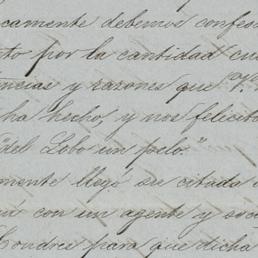 camente debemos confes
to por la cantidad cu
encias y razones que V.
ha hecho, y nos felicit
"del Lobo un pelo."
mente llegó su citada
con un agente y soc
Londres para que dicha